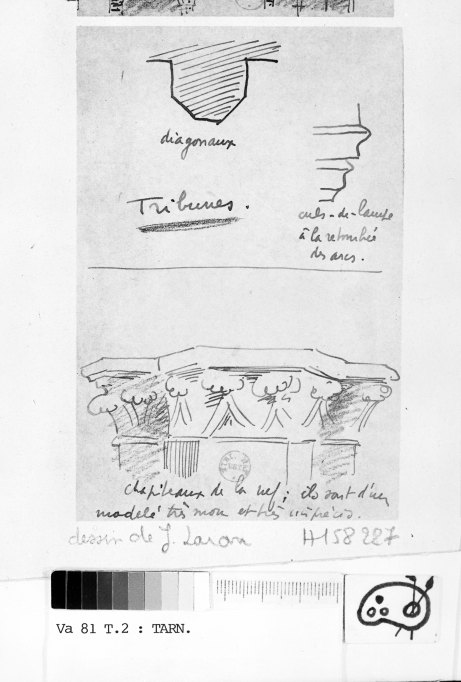 diagonaux
Tribunes.
culs-de-lampe
à la retombée
des arcs.
chapiteaux de la nef ; ils sont d'un
modelé très mou et très imprécis.
dessin de J. Laran H 158 227
Va 81 T.2 : TARN.